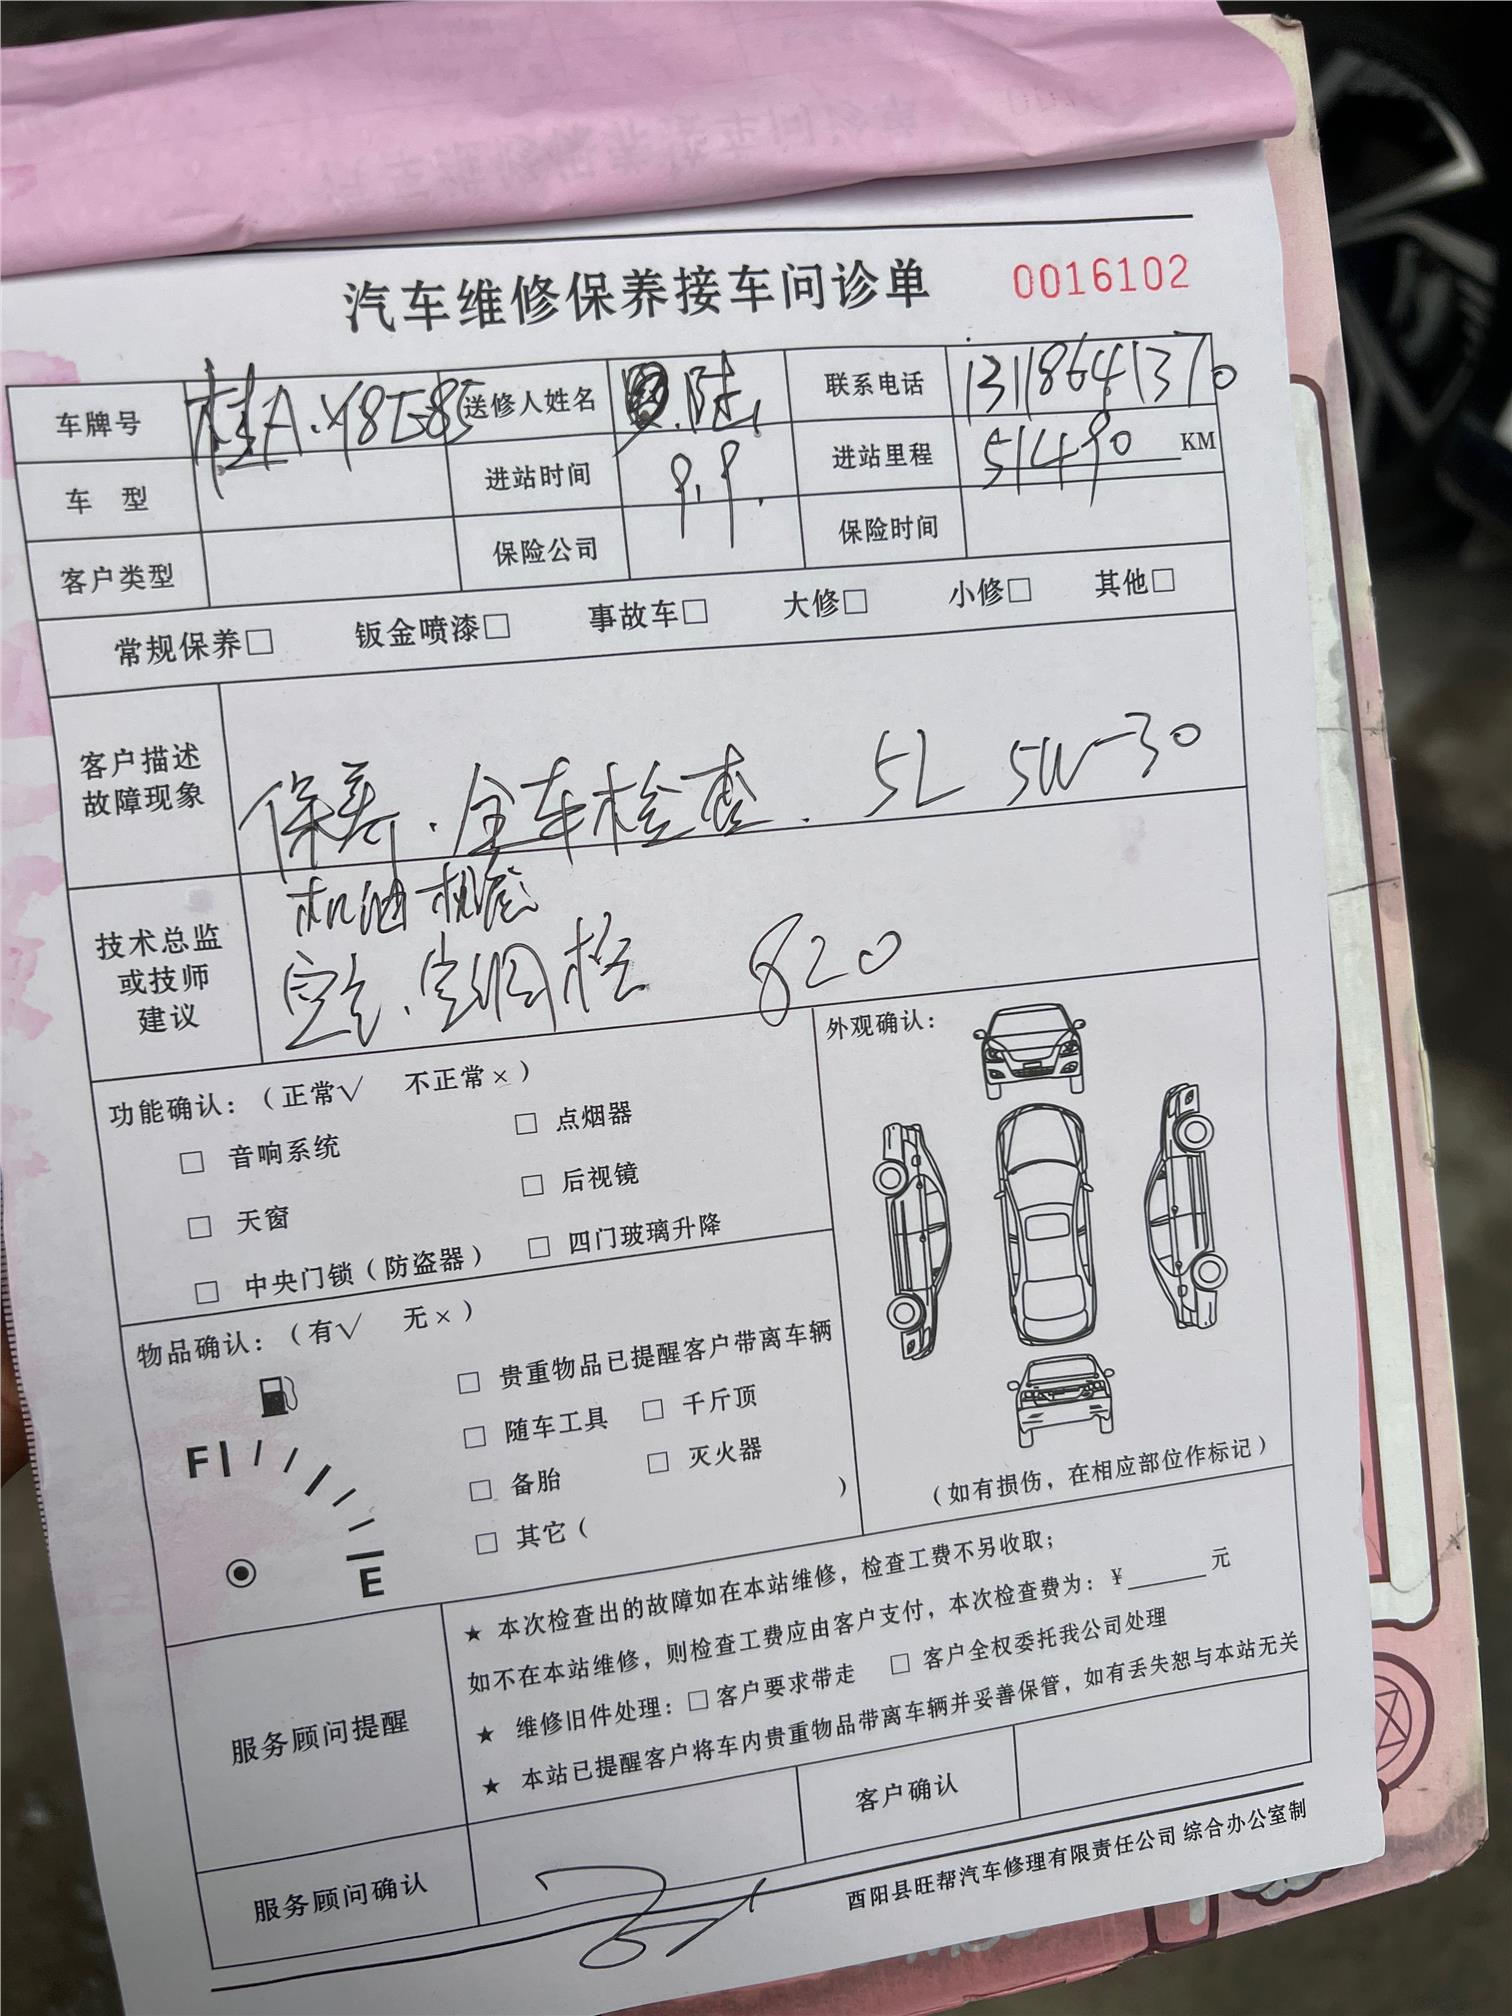 汽车维修保养接车问诊单 0016102
车牌号 桂A·Y8E85 送修人姓名 陆 联系电话 13118641370
车 型 进站时间 9.9. 进站里程 51490 KM
客户类型 保险公司 保险时间
常规保养□ 钣金喷漆□ 事故车□ 大修□ 小修□ 其他□
客户描述
故障现象
保养.全车检查. 5L 5W-30
技术总监
或技师
建议
机油 机滤
空气.空调格 820
功能确认:(正常√ 不正常×)
□ 音响系统 □ 点烟器
□ 天窗 □ 后视镜
□ 中央门锁(防盗器) □ 四门玻璃升降
外观确认:
(如有损伤,在相应部位作标记)
物品确认:(有√ 无×)
F
E
□ 贵重物品已提醒客户带离车辆
□ 随车工具 □ 千斤顶
□ 备胎 □ 灭火器
□ 其它( )
服务顾问提醒
★ 本次检查出的故障如在本站维修,检查工费不另收取;
如不在本站维修,则检查工费应由客户支付,本次检查费为:¥______元
★ 维修旧件处理:□客户要求带走 □客户全权委托我公司处理
★ 本站已提醒客户将车内贵重物品带离车辆并妥善保管,如有丢失恕与本站无关
服务顾问确认 客户确认
酉阳县旺帮汽车修理有限责任公司 综合办公室制